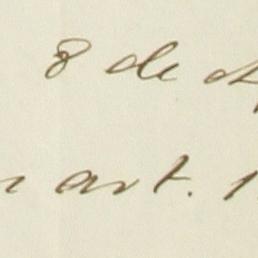 8 de
art. 1